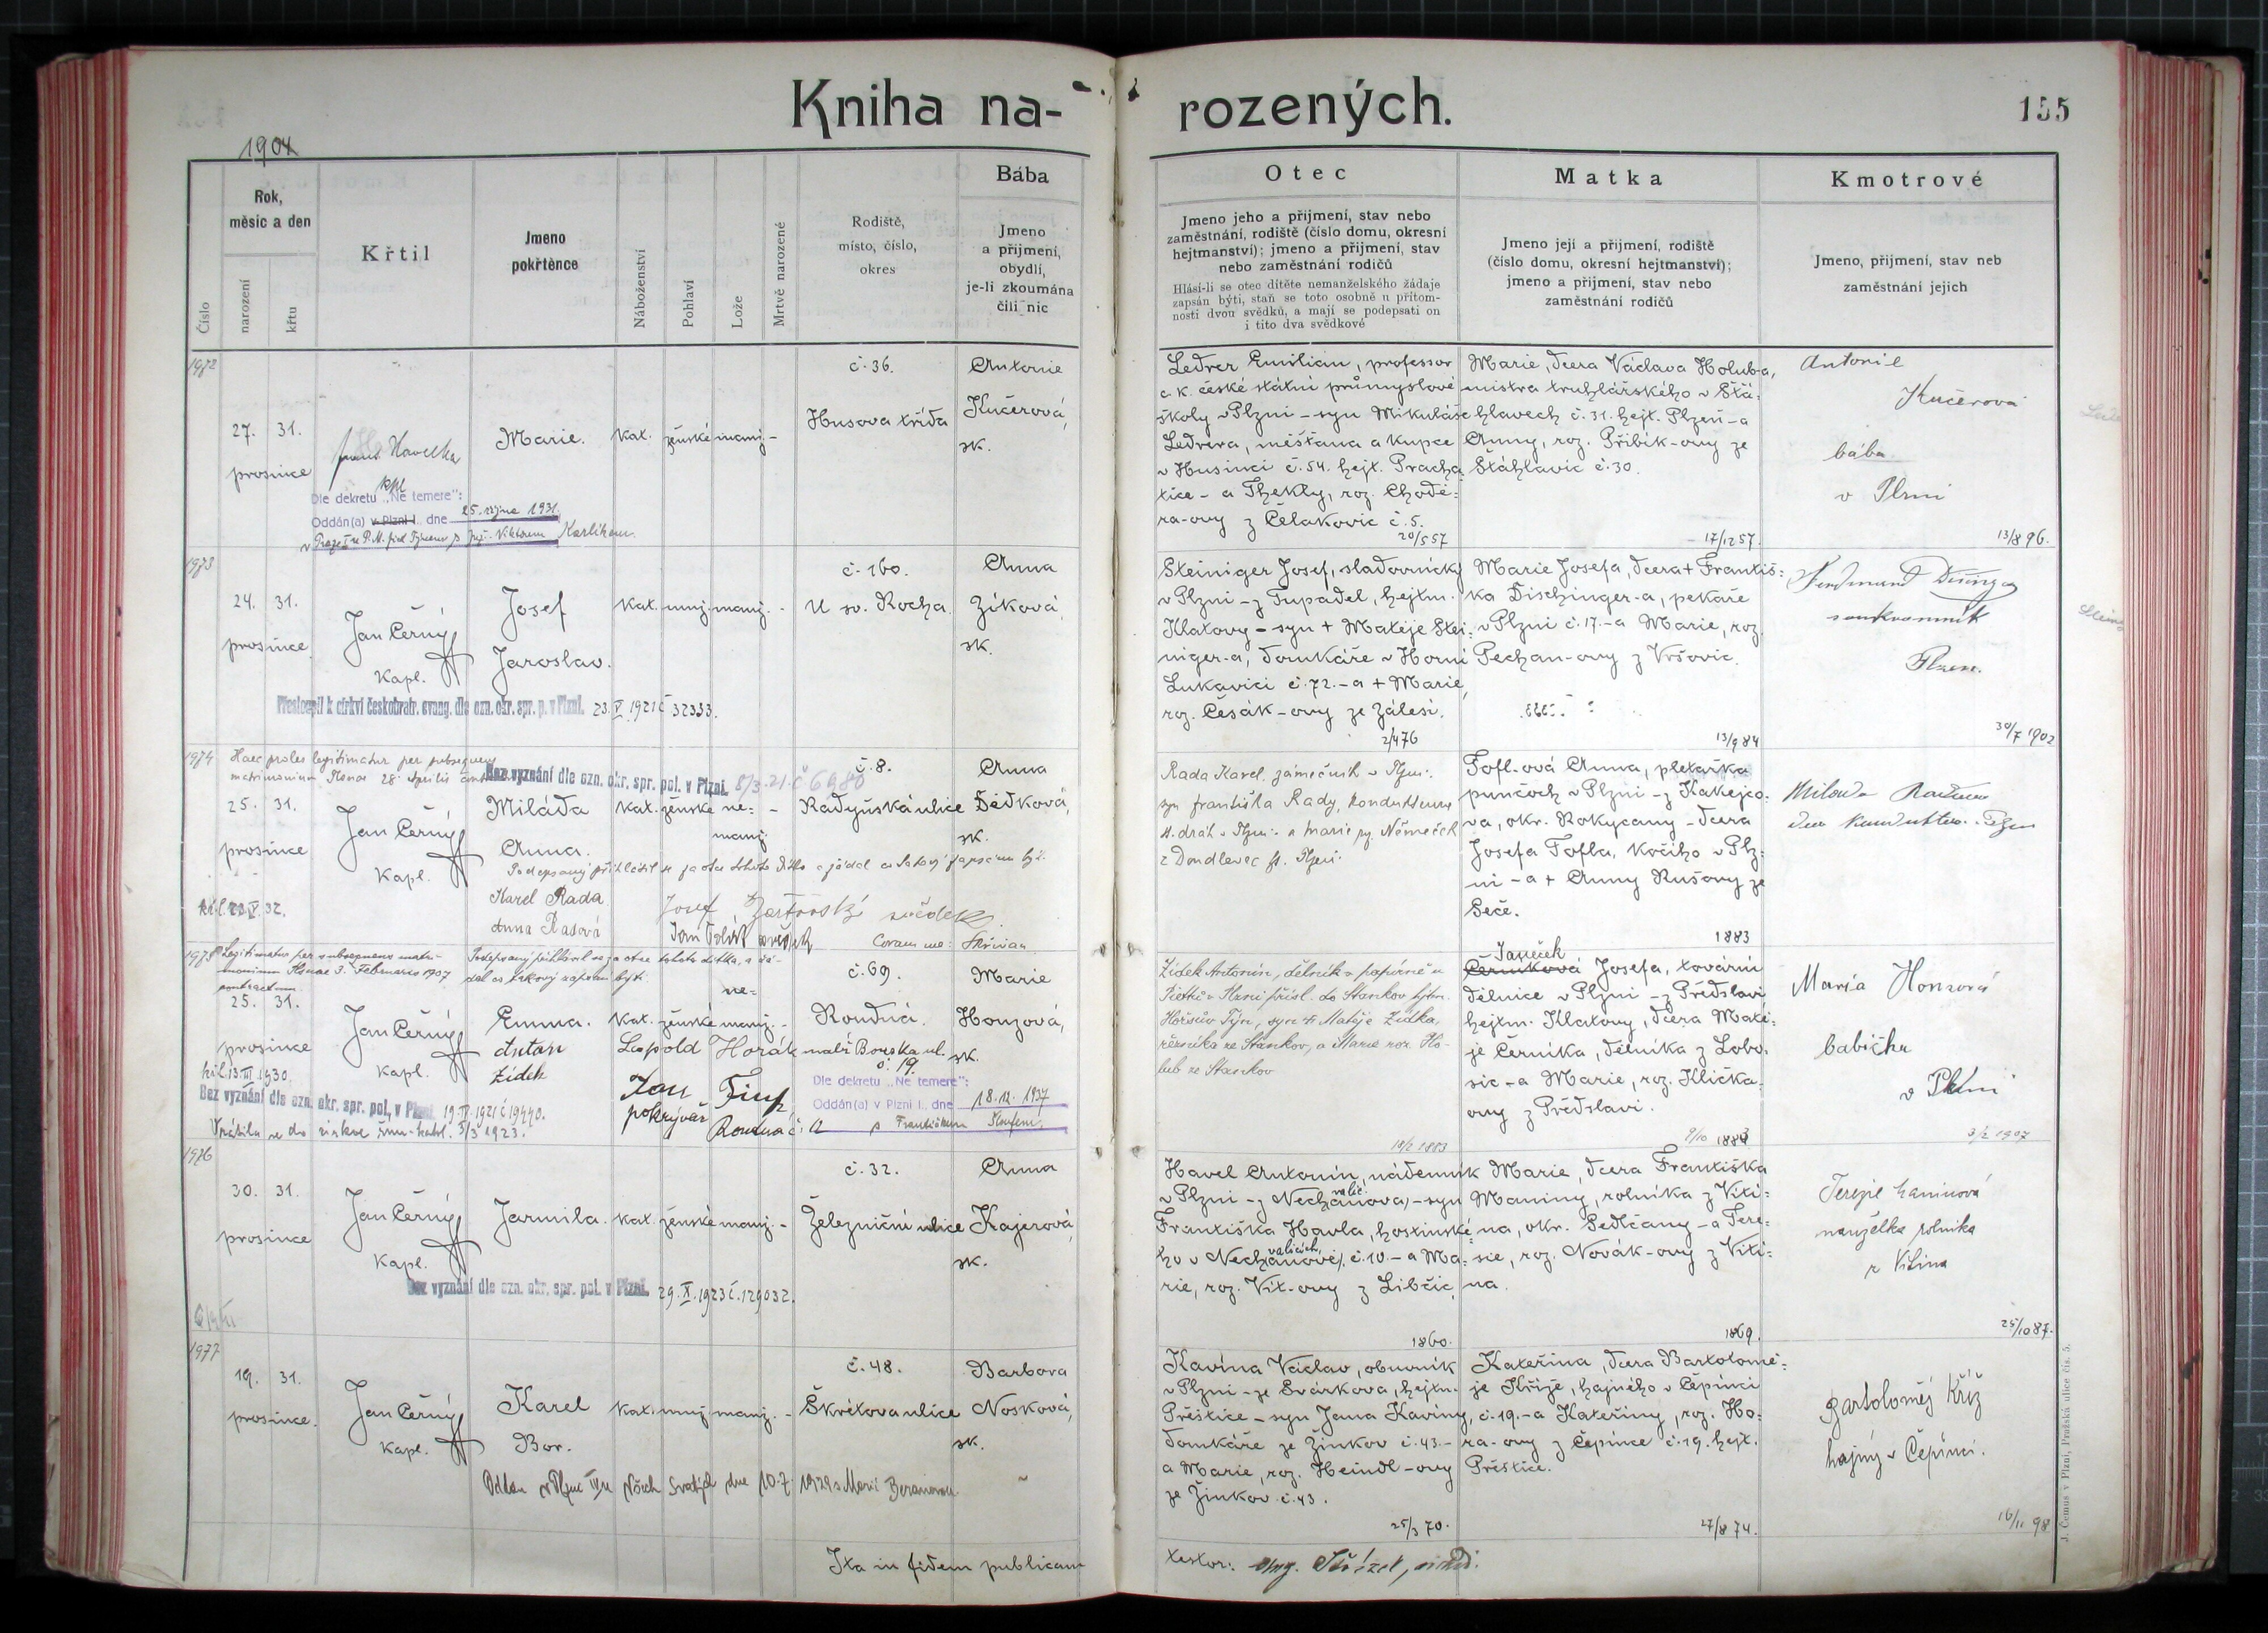 Kniha na-
rozených.
155
1904
Číslo
Rok,
měsíc a den
narození
křtu
Křtil
Jmeno
pokřtěnce
Náboženství
Pohlaví
Lože
Mrtvě narozené
Rodiště,
místo, číslo,
okres
Bába
Jmeno
a přijmení,
obydlí,
je-li zkoumána
čili nic
Otec
Jmeno jeho a přijmení, stav nebo
zaměstnání, rodiště (číslo domu, okresní
hejtmanství); jmeno a přijmení, stav
nebo zaměstnání rodičů
Hlásí-li se otec dítěte nemanželského žádaje
zapsán býti, staň se toto osobně u přítom-
nosti dvou svědků, a mají se podepsati on
i tito dva svědkové
Matka
Jmeno její a přijmení, rodiště
(číslo domu, okresní hejtmanství);
jmeno a přijmení, stav nebo
zaměstnání rodičů
Kmotrové
Jmeno, přijmení, stav neb
zaměstnání jejich
1972
27. 31.
prosince
Havelka
kpl
Marie.
kat. ženské manž. -
č. 36.
Husova třída
Antonie
Kučerová,
zk.
Dle dekretu „Ne temere":
Oddán(a) v Plzni I., dne 25. října 1931
Karlíkem.
Ledrer Emilian, professor
c. k. české státní průmyslové
školy v Plzni - syn Mikuláše
Ledrera, měšťana a kupce
v Husinci č. 54. hejt. Pracha-
tice - a Thekly, roz. Chodě-
ra-ovy z Čelakovic č. 5.
20/5 57
Marie, dcera Václava Holuba,
mistra truhlářského v Šťá-
hlavech č. 31. hejt. Plzeň - a
Anny, roz. Přibík-ovy ze
Šťáhlavic č. 30.
17/12 57.
Antonie
Kučerová
bába
v Plzni
13/8 96.
1973
24. 31.
prosince
Jan Černý
Kapl.
Josef
Jaroslav.
kat. muž. manž. -
č. 160.
U sv. Rocha.
Anna
Zíková,
zk.
Přestoupil k církvi českobratr. evang. dle ozn. okr. spr. p. v Plzni. 23. V. 1921 č. 32333.
Steiniger Josef, sladovnický
v Plzni - z Tupadel, hejtm.
Klatovy - syn + Matěje Stei-
niger-a, domkáře v Horní
Lukavici č. 72. - a + Marie,
roz. Česák-ovy ze Zálesí.
2/4 76
Marie Josefa, dcera + Františ-
ka Dischinger-a, pekaře
v Plzni č. 17. - a Marie, roz.
Pechan-ovy z Vršovic.
13/9 84
Ferdinand
soukromník
Plzeň.
30/7 1902
1974
Haec proles legitimatur per subsequens
matrimonium Plsnae 28. Aprilis
Bez vyznání dle ozn. okr. spr. pol. v Plzni. 8/3. 21. č 6980
25. 31.
prosince
Jan Černý
Kapl.
Miláda
Anna.
kat. ženské ne-
manž.
-
č. 8.
Radyňská ulice
Anna
Šídková,
zk.
Podepsaný přihlásil se za otce tohoto dítka a žádal za takový zapsánu býti.
Karel Rada
Anna Rasová
Josef svědek
Jan svědek
Coram me:
Rada Karel, zámečník v Plzni.
syn Františka Rady, konduktéra
st. drah v Plzni a Marie roz. Němeček
z Doudlevec
Tofl-ová Anna, pletařka
punčoch v Plzni - z Kakejco-
va, okr. Rokycany - dcera
Josefa Tofla, kočího v Plz-
ni - a + Anny Rušovy ze
Seče.
1883
Milouda
1975
Legitimatur per subsequens matri-
monium Plsnae 3. Februaris 1907
Podepsaný přihlásil se za otce tohoto dítka, a žá-
dal co takový zapsán býti.
25. 31.
prosince
Jan Černý
Kapl.
Emma.
Anton
Zídek
ne-
kat. ženské manž. -
Leopold Horák malíř
pokrývač
č. 69.
Roudná.
Marie
Honzová,
zk.
Dle dekretu „Ne temere":
Oddán(a) v Plzni I., dne 18.12. 1937
s Františkem
Bez vyznání dle ozn. okr. spr. pol. v Plzni 19. 1921 č 19440.
Vrátila se do církve řím-kat. 5/3 1923.
Zídek Antonín, dělník v papírně u
Piette v Plzni přísl. do Stankov hejtm.
Horšův Týn, syn + Matěje Zídka,
řezníka ze Stankov, a Marie roz. Ho-
lub ze Stankov
18/2 1883
Janeček
Černíková Josefa, tovární
dělnice v Plzni - z Předslavi
hejtm. Klatovy, dcera Matě-
je Černíka, dělníka z Lobo-
sic - a Marie, roz. Klička-
ovy z Předslavi.
9/10 1884
Maria Honzová
babička
v Plzni
3/2 1907
1976
30. 31.
prosince
Jan Černý
Kapl.
Jarmila.
kat. ženské manž. -
č. 32.
Železniční ulice
Anna
Kajerová,
zk.
Bez vyznání dle ozn. okr. spr. pol. v Plzni. 29. X. 1923 č. 129032.
Havel Antonín, nádenník
v Plzni - z Nechanova - syn
Františka Havla, hostinské-
ho v Nechanově, č. 10. - a Ma-
rie, roz. Vít-ovy z Libčic.
1860.
Marie, dcera Františka
Maniny, rolníka z Vití-
na, okr. Sedlčany - a Tere-
sie, roz. Novák-ovy z Vití-
na.
1869.
Terezie Maninová
manželka rolníka
z Vitína
25/10 87.
1977
19. 31.
prosince.
Jan Černý
Kapl.
Karel
Bor.
kat. muž. manž. -
č. 48.
Škrétova ulice
Barbora
Nosková,
zk.
Oddán v Plzni Všech Svatých dne 10.7. 1929 s Marií Beranovou
Kavina Václav, obuvník
v Plzni - ze Svárkova, hejtm.
Přeštice - syn Jana Kaviny,
domkáře ze Žinkov č. 43. -
a Marie, roz. Heindl-ovy
ze Žinkov č. 43.
25/3 70.
Kateřina, dcera Bartolomě-
je Kříže, hajného v Čepinci
č. 19. - a Kateřiny, roz. Ho-
ra-ovy z Čepince č. 19. hejt.
Přeštice.
27/8 74.
Bartoloměj Kříž
hajný v Čepinci.
16/11 98
Ita in fidem publicam
testor:
J. Čenus v Plzni, Pražská ulice čís. 5.